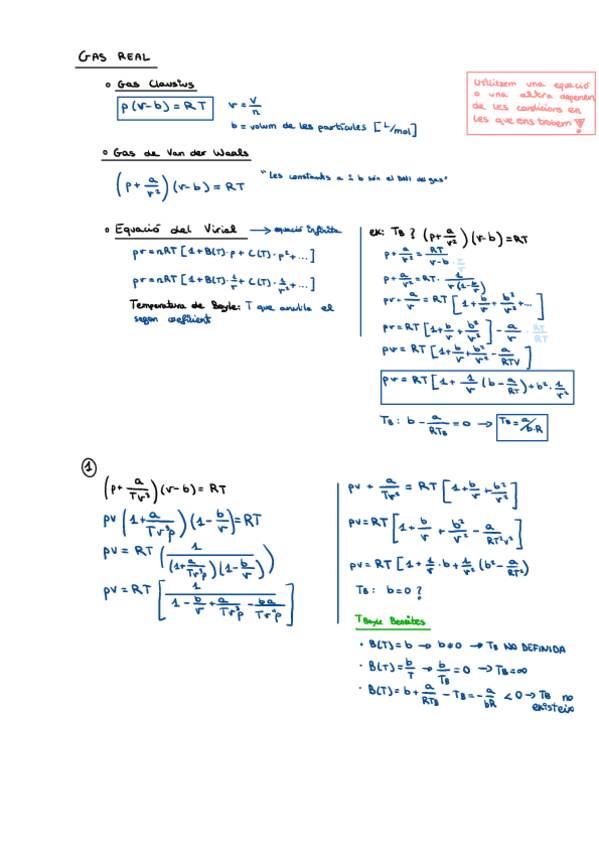 GAS REAL
Utilitzem una equació
o una altra depenen
de les condicions en
les que ens trobem !
o Gas Clausius
p(v-b) = RT
v = V/n
b = volum de les partícules [L/mol]
o Gas de Van der Waals
(p + a/v²)(v-b) = RT
"Les constants a i b són el DNI del gas"
o Equació del Virial → equació infinita
pv = nRT [1 + B(T)·p + C(T)·p² + ...]
pv = nRT [1 + B(T)·1/v + C(T)·1/v² + ...]
Temperatura de Boyle: T que anul·la el
segon coeficient
ex: TB ? (p + a/v²)(v-b) = RT
p + a/v² = RT/(v-b) · v/v
p + a/v² = RT · 1/(v(1-b/v))
pv + a/v = RT [1 + b/v + b²/v² + ...]
pv = RT [1 + b/v + b²/v²] - a/v · RT/RT
pv = RT [1 + b/v + b²/v² - a/RTV]
pv = RT [1 + 1/v (b - a/RT) + b² · 1/v²
TB : b - a/RTB = 0 → TB = a/b·R
1
(p + a/Tv³)(v-b) = RT
pv (1 + a/Tv³p)(1 - b/v) = RT
pv = RT (1/((1 + a/Tv³p)(1 - b/v)))
pv = RT [1/(1 - b/v + a/Tv³p - ba/Tv⁴p)]
pv + a/Tv² = RT [1 + b/v + b²/v²]
pv = RT [1 + b/v + b²/v² - a/RT²v²]
pv = RT [1 + 1/v · b + 1/v² (b² - a/RT²)
TB : b = 0 ?
T Boyle Bessites
· B(T) = b → b ≠ 0 → TB NO DEFINIDA
· B(T) = b/T → b/TB = 0 → TB = ∞
· B(T) = b + a/RTB - TB = - a/bR < 0 → TB no
existeix